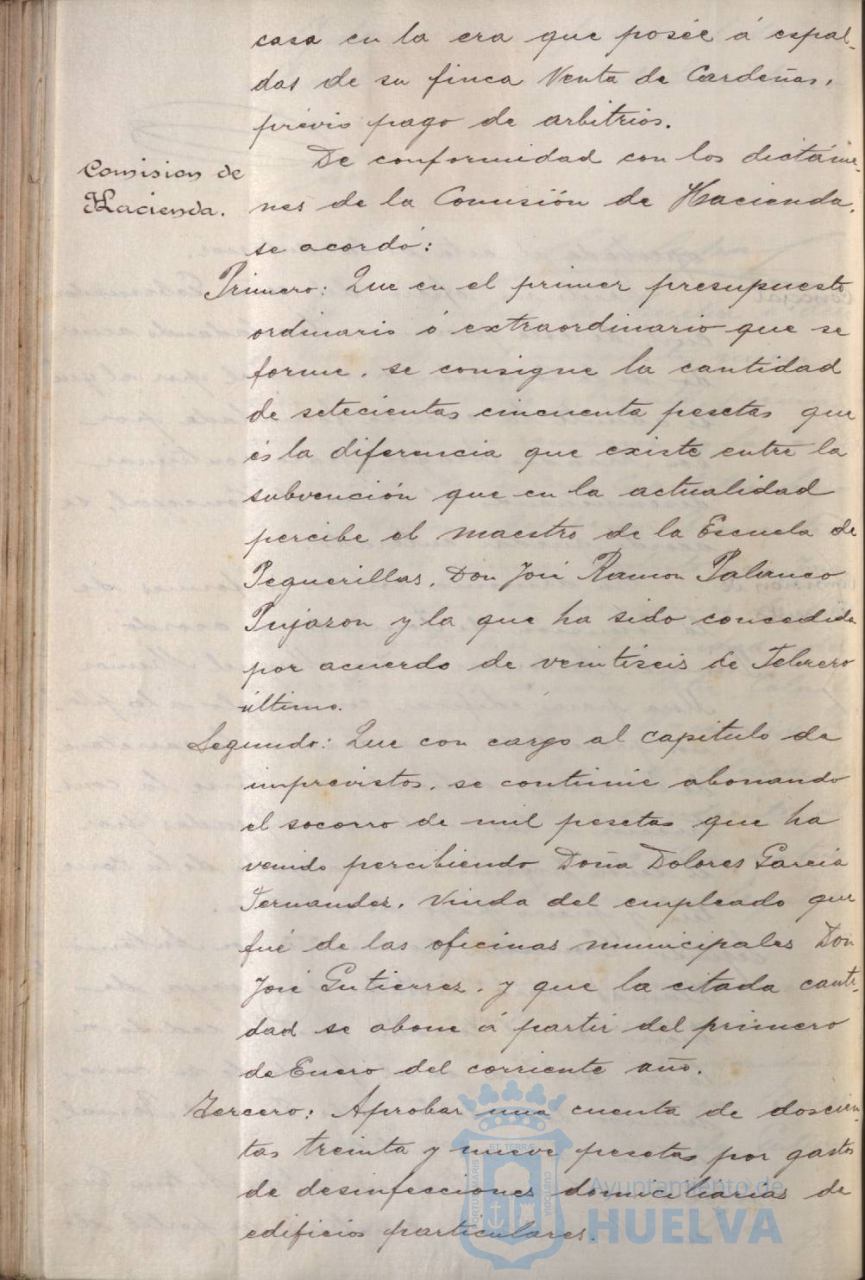 casa en la era que posée á espal-
das de su finca Venta de Cardeñas,
previo pago de arbitrios.
Comision de
Hacienda.
De conformidad con los dictáme-
nes de la Comisión de Hacienda,
se acordó:
Primero: Que en el primer presupuesto
ordinario ó extraordinario que se
forme, se consigne la cantidad
de setecientas cincuenta pesetas que
és la diferencia que existe entre la
subvención que en la actualidad
percibe el maestro de la Escuela de
Peguerillas, Don José Ramon Palanco
Pujazon y la que ha sido concedida
por acuerdo de veintiseis de Febrero
último.
Segundo: Que con cargo al capitulo de
imprevistos, se continúe abonando
el socorro de mil pesetas que ha
venido percibiendo Doña Dolores García
Fernandez, Viuda del empleado que
fué de las oficinas municipales Don
José Gutierrez, y que la citada canti-
dad se abone á partir del primero
de Enero del corriente año.
Tercero: Aprobar una cuenta de doscien-
tas treinta y nueve pesetas por gastos
de desinfecciones domiciliarias de
edificios particulares.
Ayuntamiento de
HUELVA